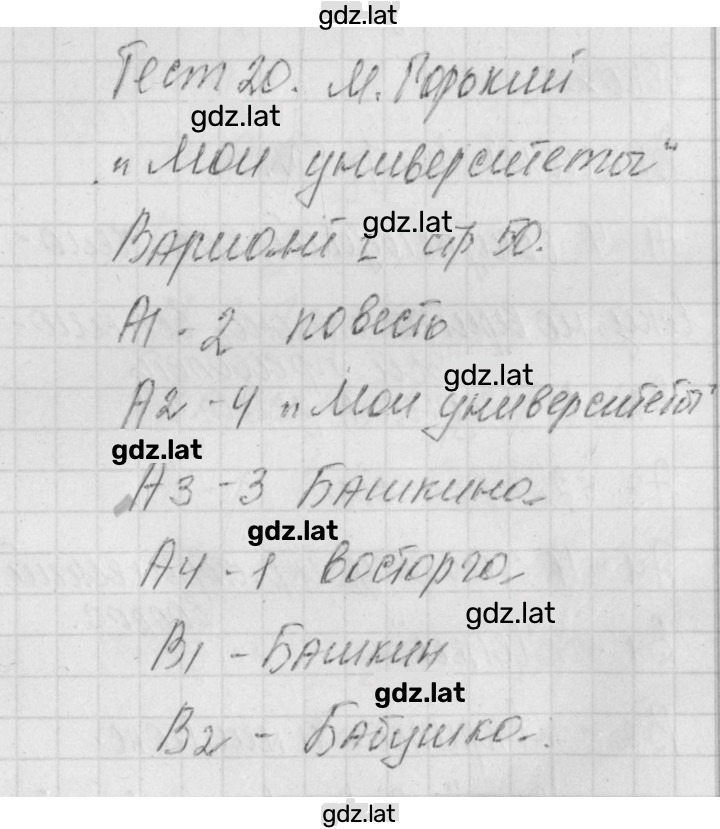 gdz.lat
Тест 20. М. Горький
gdz.lat
„Мои университеты“
gdz.lat
Вариант 2 стр 50.
А1 - 2 повесть
gdz.lat
А2 - 4 „Мои университеты“
gdz.lat
А3 - 3 Башкина
gdz.lat
А4 - 1 восторга
gdz.lat
В1 - Башкин
gdz.lat
В2 - Бабушка.
gdz.lat